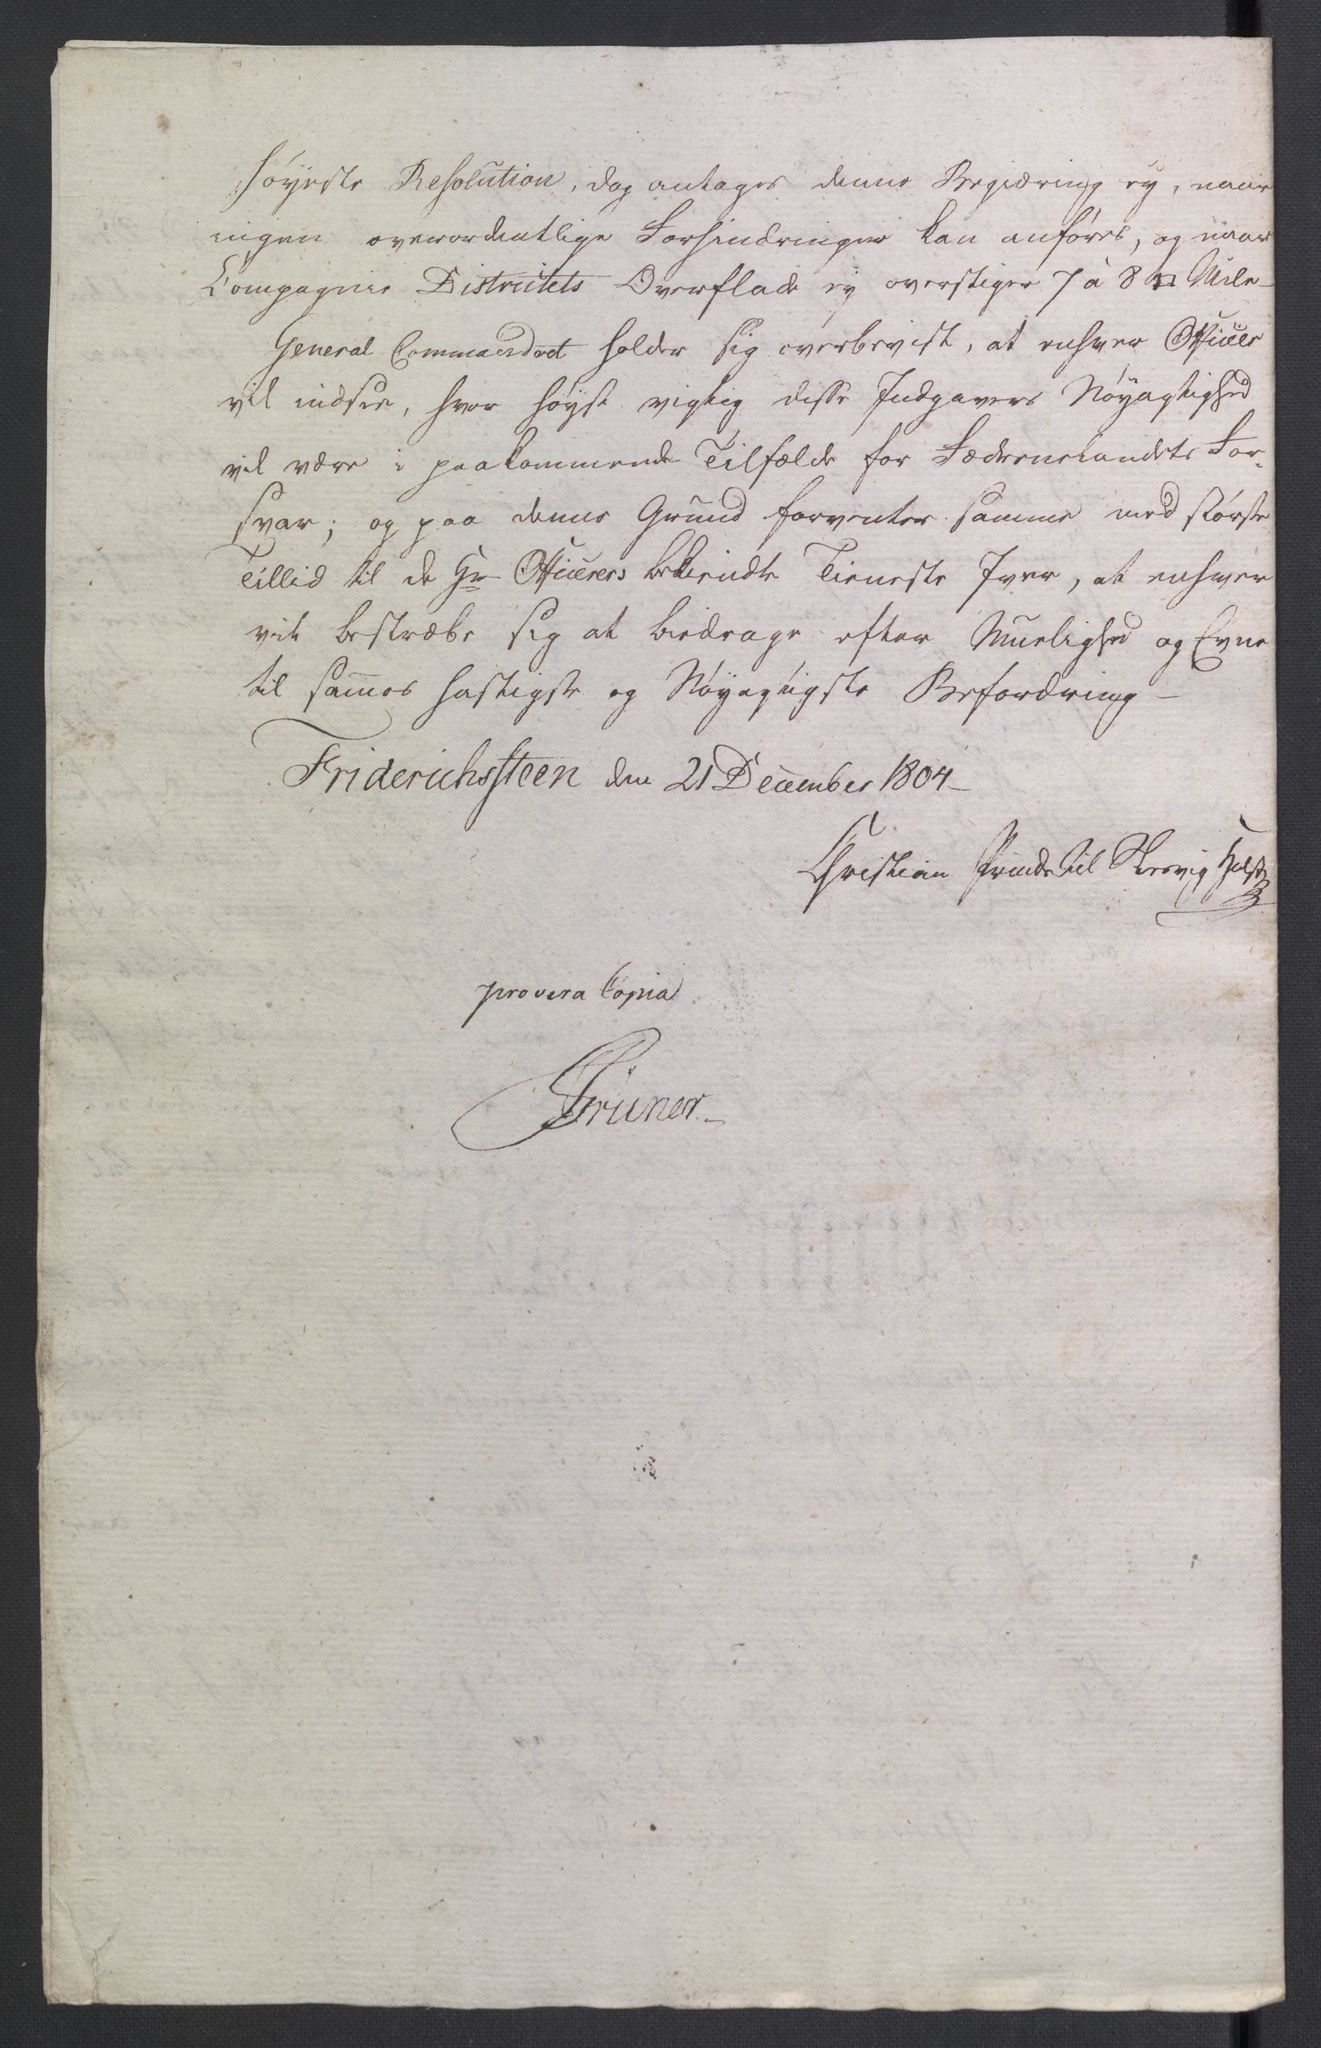 høyeste Resolution, dog antages denne Begiæring ey, naar
ingen overordentlige Forhindringer kan anføres, og naar
Compagnie Districtets Overflade ey overstiger 7 à 8 □ Mile –
General Commandoet holder sig overbevist, at enhver Officer
vil indsee, hvor høyst vigtig disse Indgavers Nøyagtighed
vil være i paakommende Tilfælde for Fædernelandets For-
svar; og paa denne Grund forventer samme med største
Tillid til de Hr Officerers bekiendte Tieneste Iver, at enhver
vil bestræbe sig at bidrage efter Muelighed og Evne
til sammes hastigste og Nøyagtigste Befordring –
Friderichssteen den 21 December 1804 –
Christian Prinds til Slesvig Holst
pro vera Copia
Grüner. –